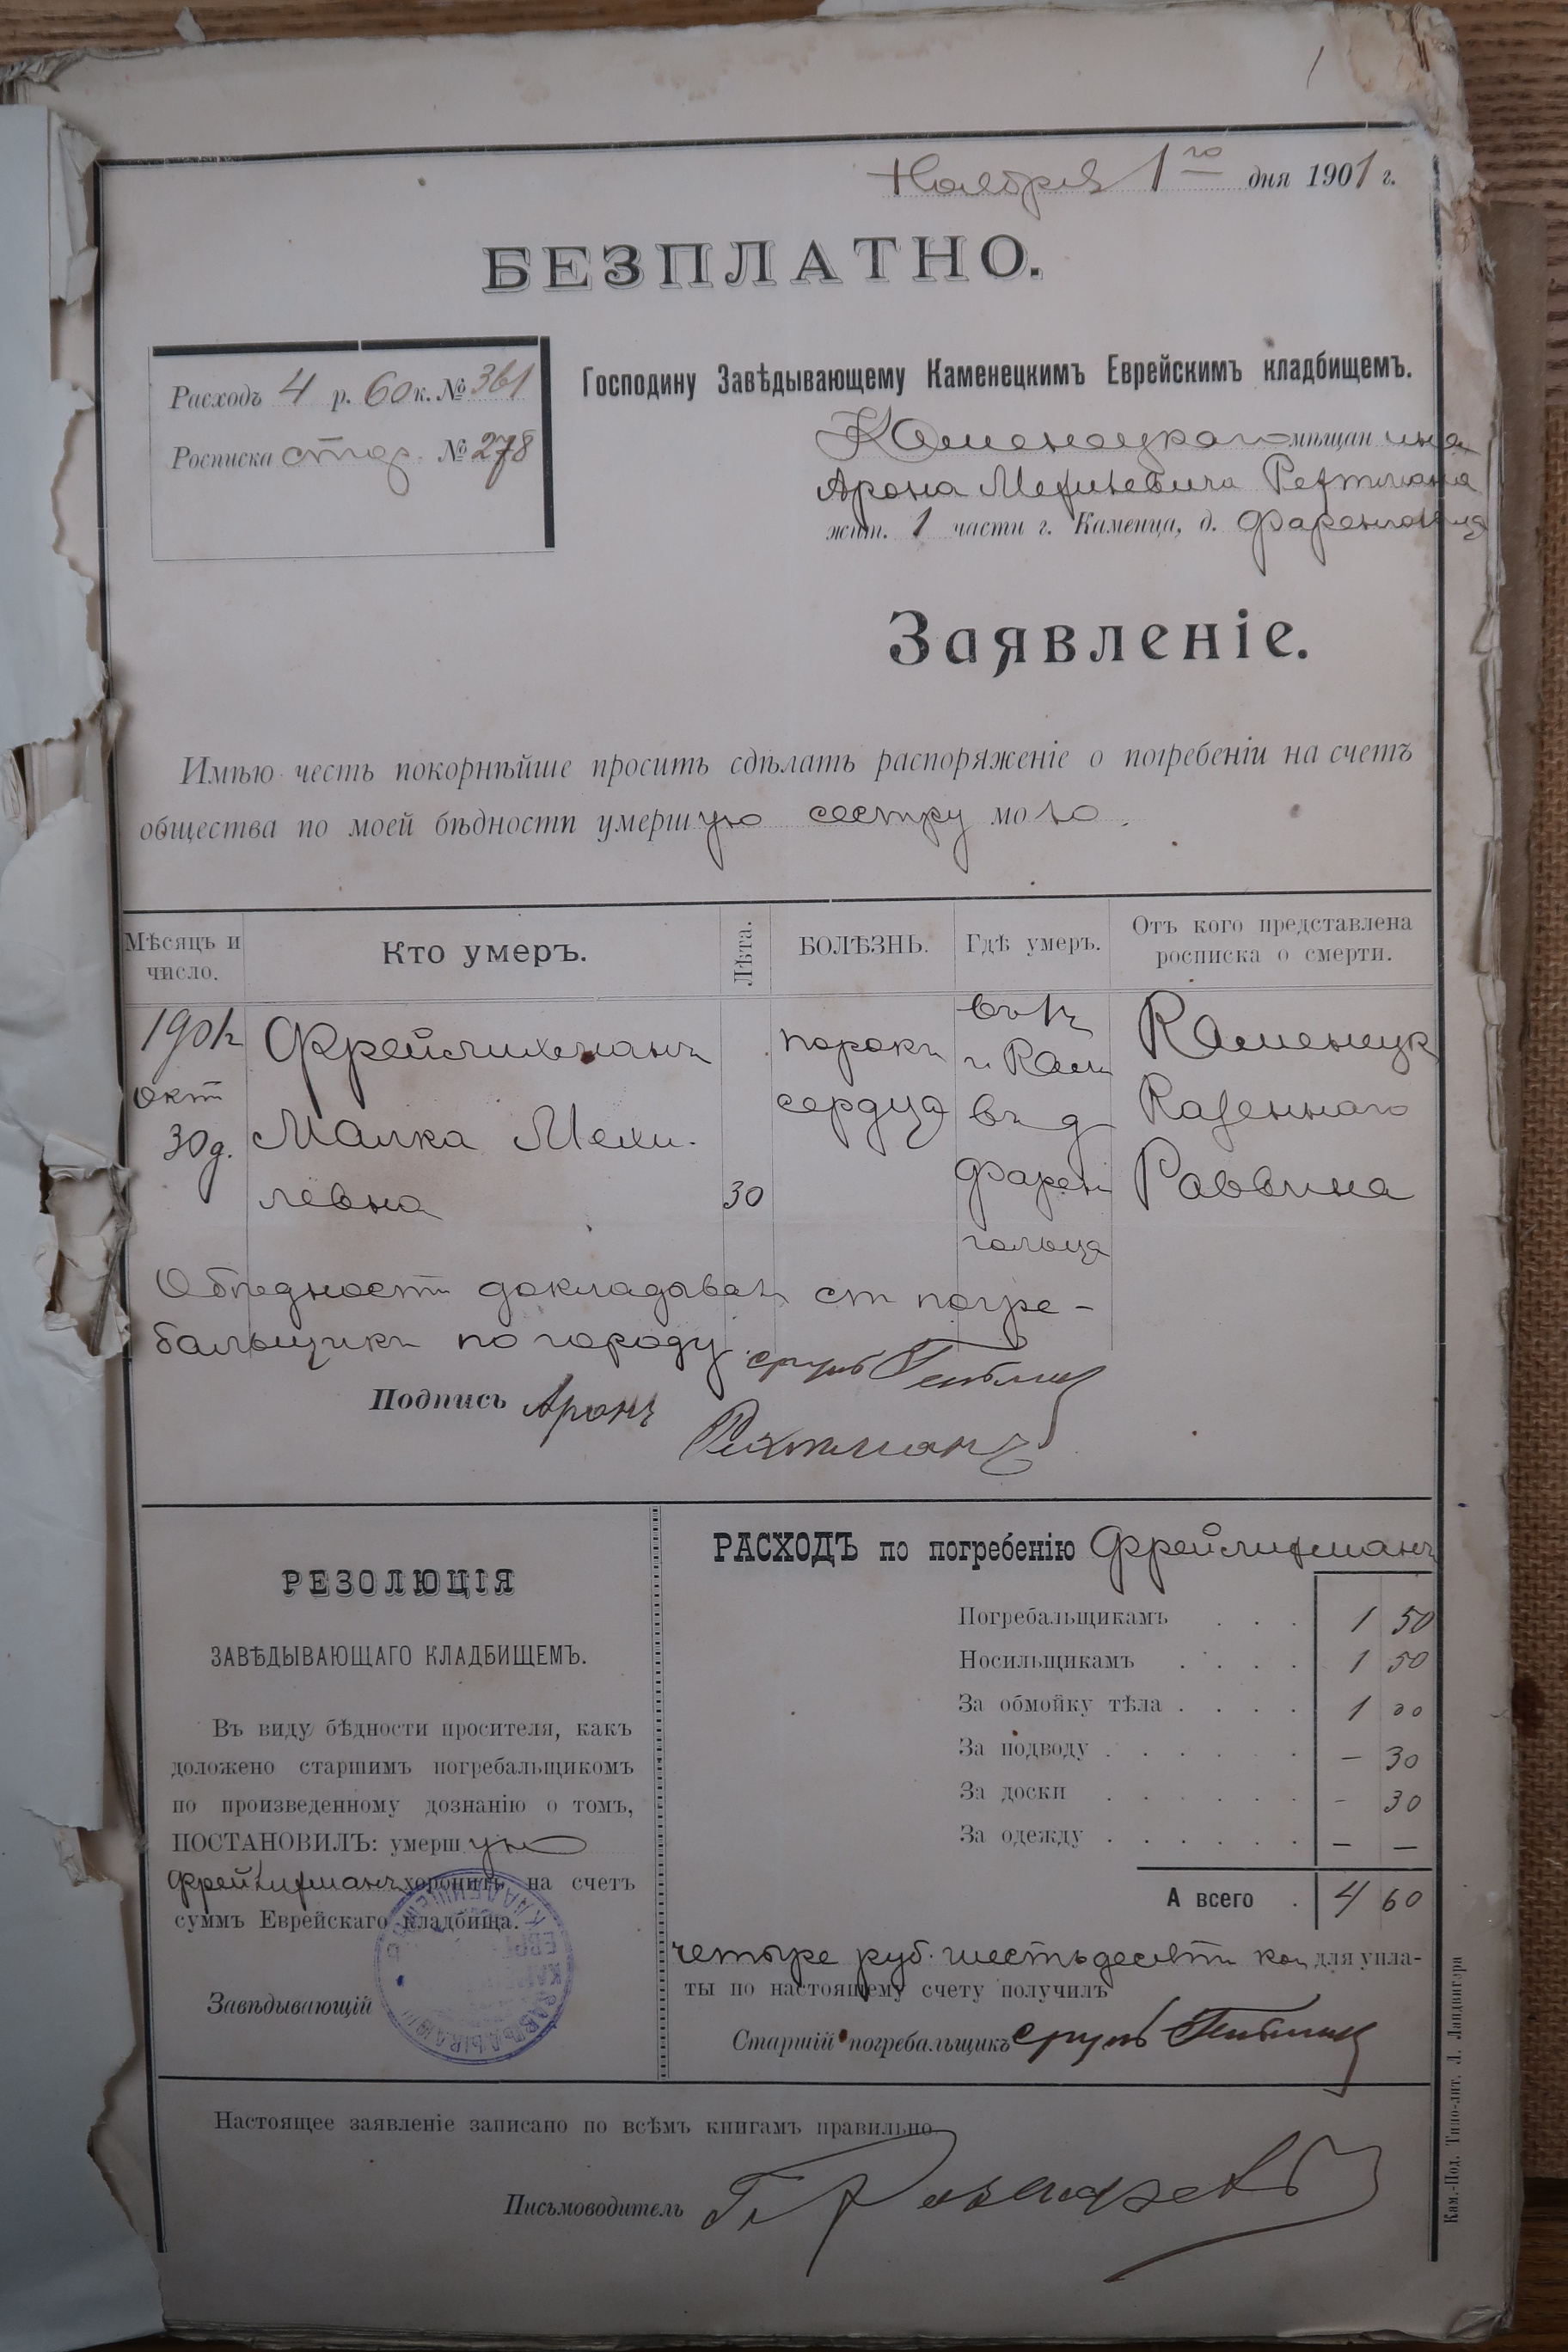 1
Ноября 1го дня 1901 г.
БЕЗПЛАТНО.
Расходъ 4 р. 60 к. № 361
Росписка стар. № 278
Господину Завѣдывающему Каменецкимъ Еврейскимъ кладбищемъ.
Каменецкаго мѣщанина
Арона Мехилевича Рехтмана
жит. 1 части г. Каменца, д. Фаренгольца
Заявленіе.
Имѣю честь покорнѣйше просить сдѣлать распоряженіе о погребеніи на счетъ
общества по моей бѣдности умершую сестру мою.
Мѣсяцъ и число.
Кто умеръ.
Лѣта.
БОЛѢЗНЬ.
Гдѣ умеръ.
Отъ кого представлена росписка о смерти.
190 окт 30 д.
Фрейлихманъ Малка Мехилевна
30
порокъ сердца
г. Кам въ д Фаренгольца
Каменецк Казеннаго Раввина
О бѣдности докладывалъ ст погре-
бальщикъ по городу сруль
Подпись Аронъ
Рихтманъ
РЕЗОЛЮЦІЯ
ЗАВѢДЫВАЮЩАГО КЛАДБИЩЕМЪ.
Въ виду бѣдности просителя, какъ
доложено старшимъ погребальщикомъ
по произведенному дознанію о томъ,
ПОСТАНОВИЛЪ: умершую
Фрейлихманъ хоронить на счетъ
суммъ Еврейскаго кладбища.
Завѣдывающій
РАСХОДЪ по погребенію Фрейлихманъ
Погребальщикамъ . . . 1 50
Носильщикамъ . . . . 1 50
За обмойку тѣла . . . . 1 00
За подводу . . . . . . — 30
За доски . . . . . . - 30
За одежду . . . . . . — —
А всего . 4 60
четыре руб. шестьдесятъ коп для упла-
ты по настоящему счету получилъ
Старшій погребальщикъ сруль
Настоящее заявленіе записано по всѣмъ книгамъ правильно
Письмоводитель
Кам.-Под. Типо-лит. Л. Ландвигера